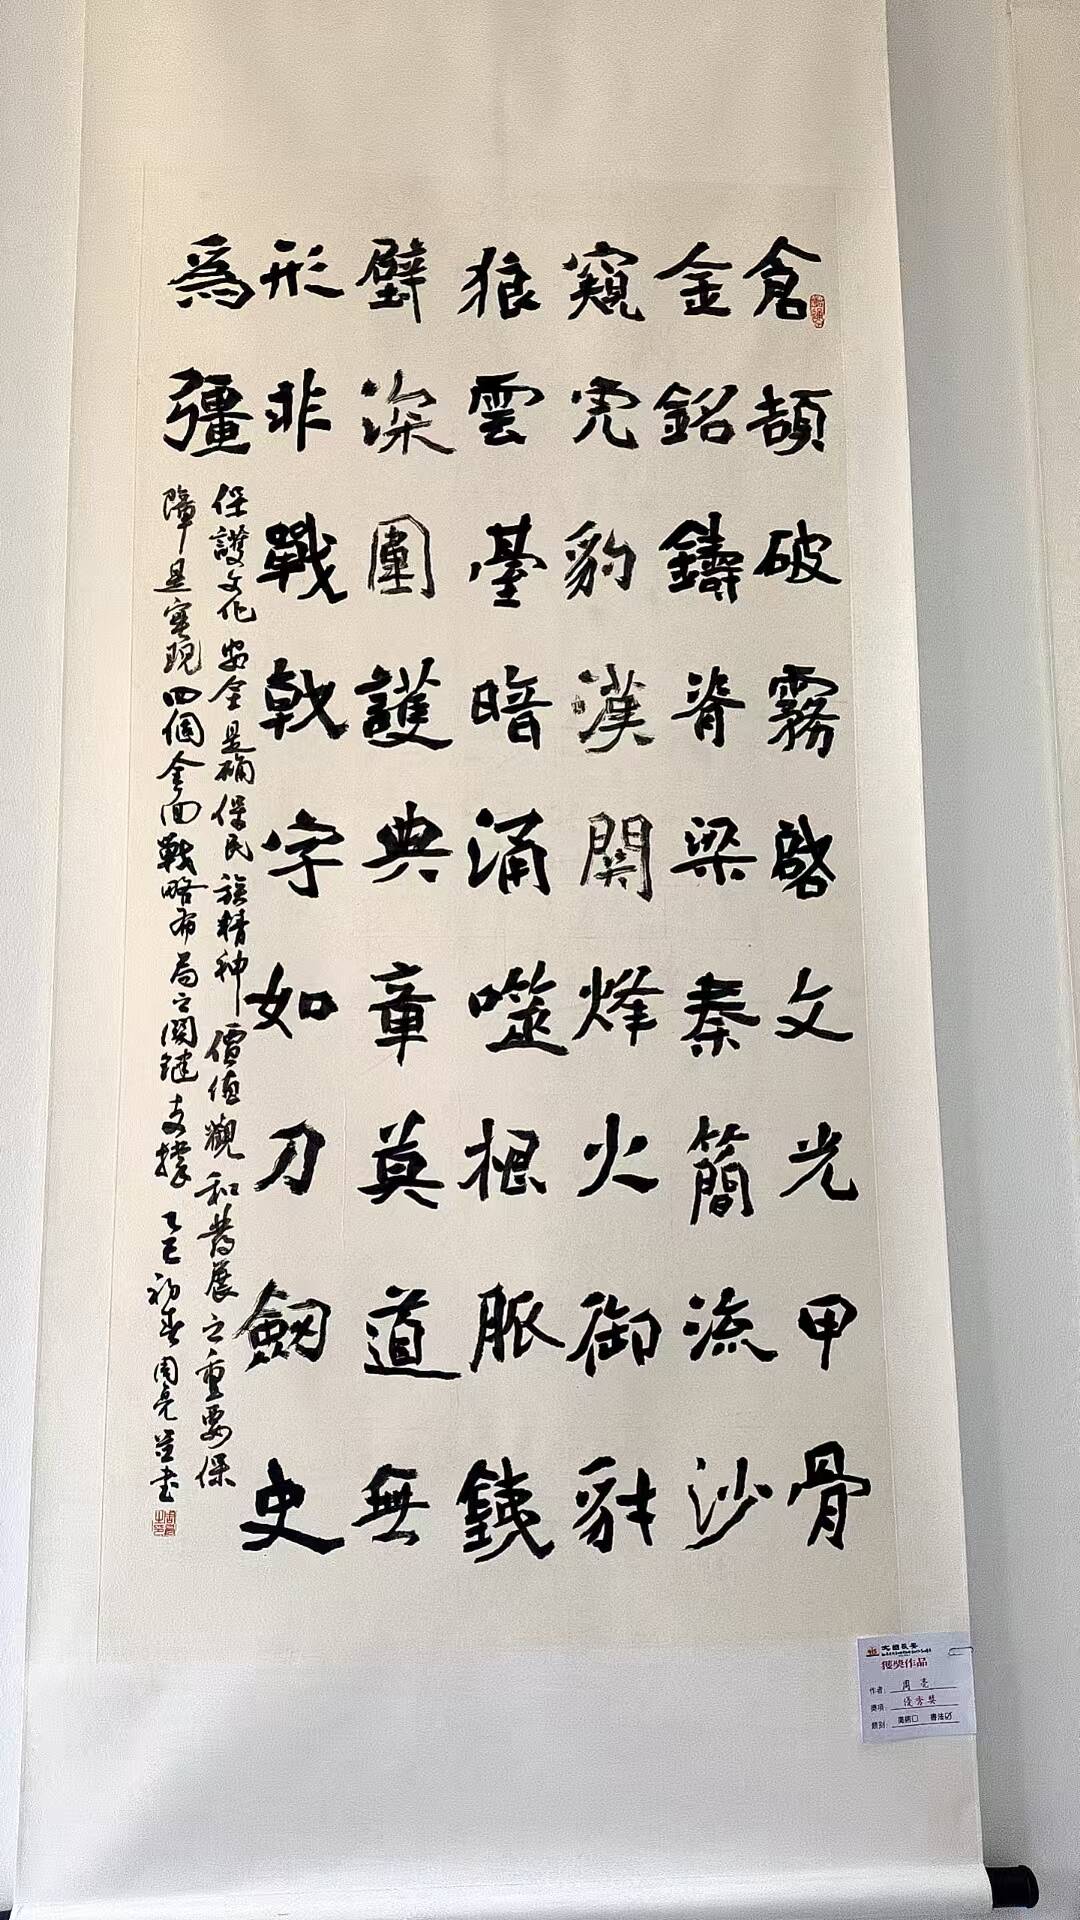 倉頡破霧啓文光甲骨
金銘鑄脊梁秦簡流沙
窺虎豹漢關烽火御豺
狼雲臺暗涌噬根脈鉄
壁深圍護典章莫道無
形非戰戟字如刀劔史
爲疆
保護文化安全是确保民族精神價值觀和發展之重要保
障是實現四個全面戰略布局之関鍵支撑乙巳初春周亮並書
獲獎作品
作者：周亮
獎項：優秀獎
類別：美術☐ 書法☑